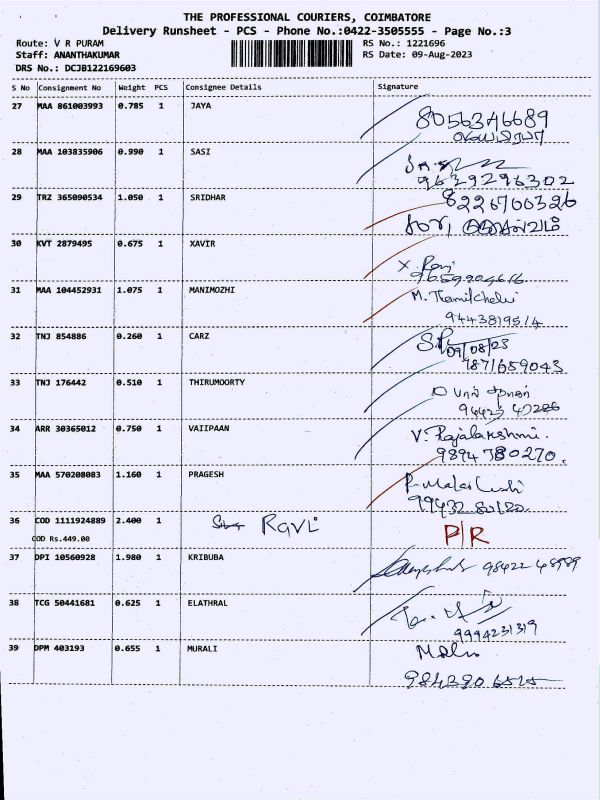 THE PROFESSIONAL COURIERS, COIMBATORE
Delivery Runsheet - PCS - Phone No.:0422-3505555 - Page No.:3
Route: V R PURAM RS No.: 1221696
Staff: ANANTHAKUMAR RS Date: 09-Aug-2023
DRS No.: DCJB122169603
S No Consignment No Weight PCS Consignee Details Signature
27 MAA 861003993 0.785 1 JAYA 8056346689
28 MAA 103835906 0.990 1 SASI
9629296302
29 TRZ 365090534 1.050 1 SRIDHAR 8226700326
30 KVT 2879495 0.675 1 XAVIR X. Ravi
9659904616
31 MAA 104452931 1.075 1 MANIMOZHI M. Thamilchelvi
9443819514
32 TNJ 854886 0.260 1 CARZ
09/08/23
7871659043
33 TNJ 176442 0.510 1 THIRUMOORTY
94425 47286
34 ARR 30365012 0.750 1 VAIIPAAN V. Rajalakshmi.
9894780270.
35 MAA 570208083 1.160 1 PRAGESH
99432 80120
36 COD 1111924889 2.400 1 Ravi P/R
COD Rs.449.00
37 DPI 10560928 1.980 1 KRIBUBA 98422 48989
38 TCG 50441681 0.625 1 ELATHRAL
9994231319
39 DPM 403193 0.655 1 MURALI
9843906525